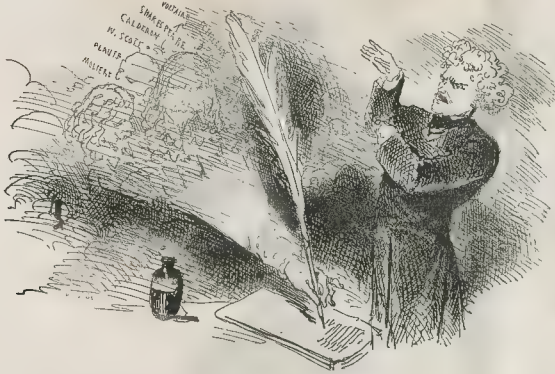 VOLTAIRE
SHAKESPEARE
CALDERON
W. SCOTT
PLAUTE
MOLIERE